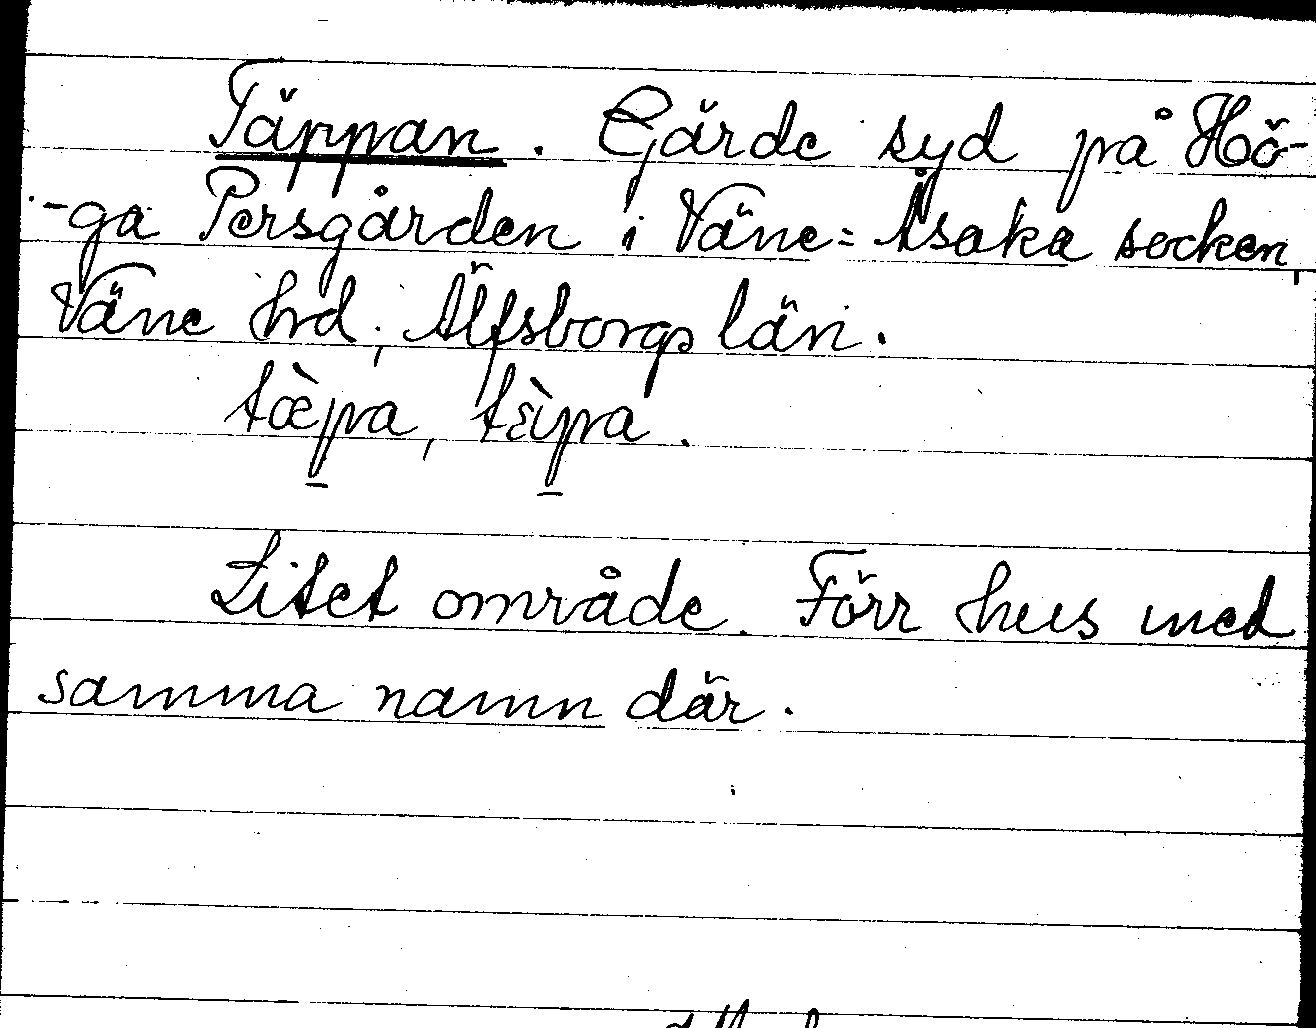 Täppan. Gärde syd på Hö-
-ga Persgården i Väne=Åsaka socken,
Väne hrd, Älfsborgs län.
tæ̀p̠a, tɛ̀p̠a.
Litet område. Förr hus med
samma namn där.